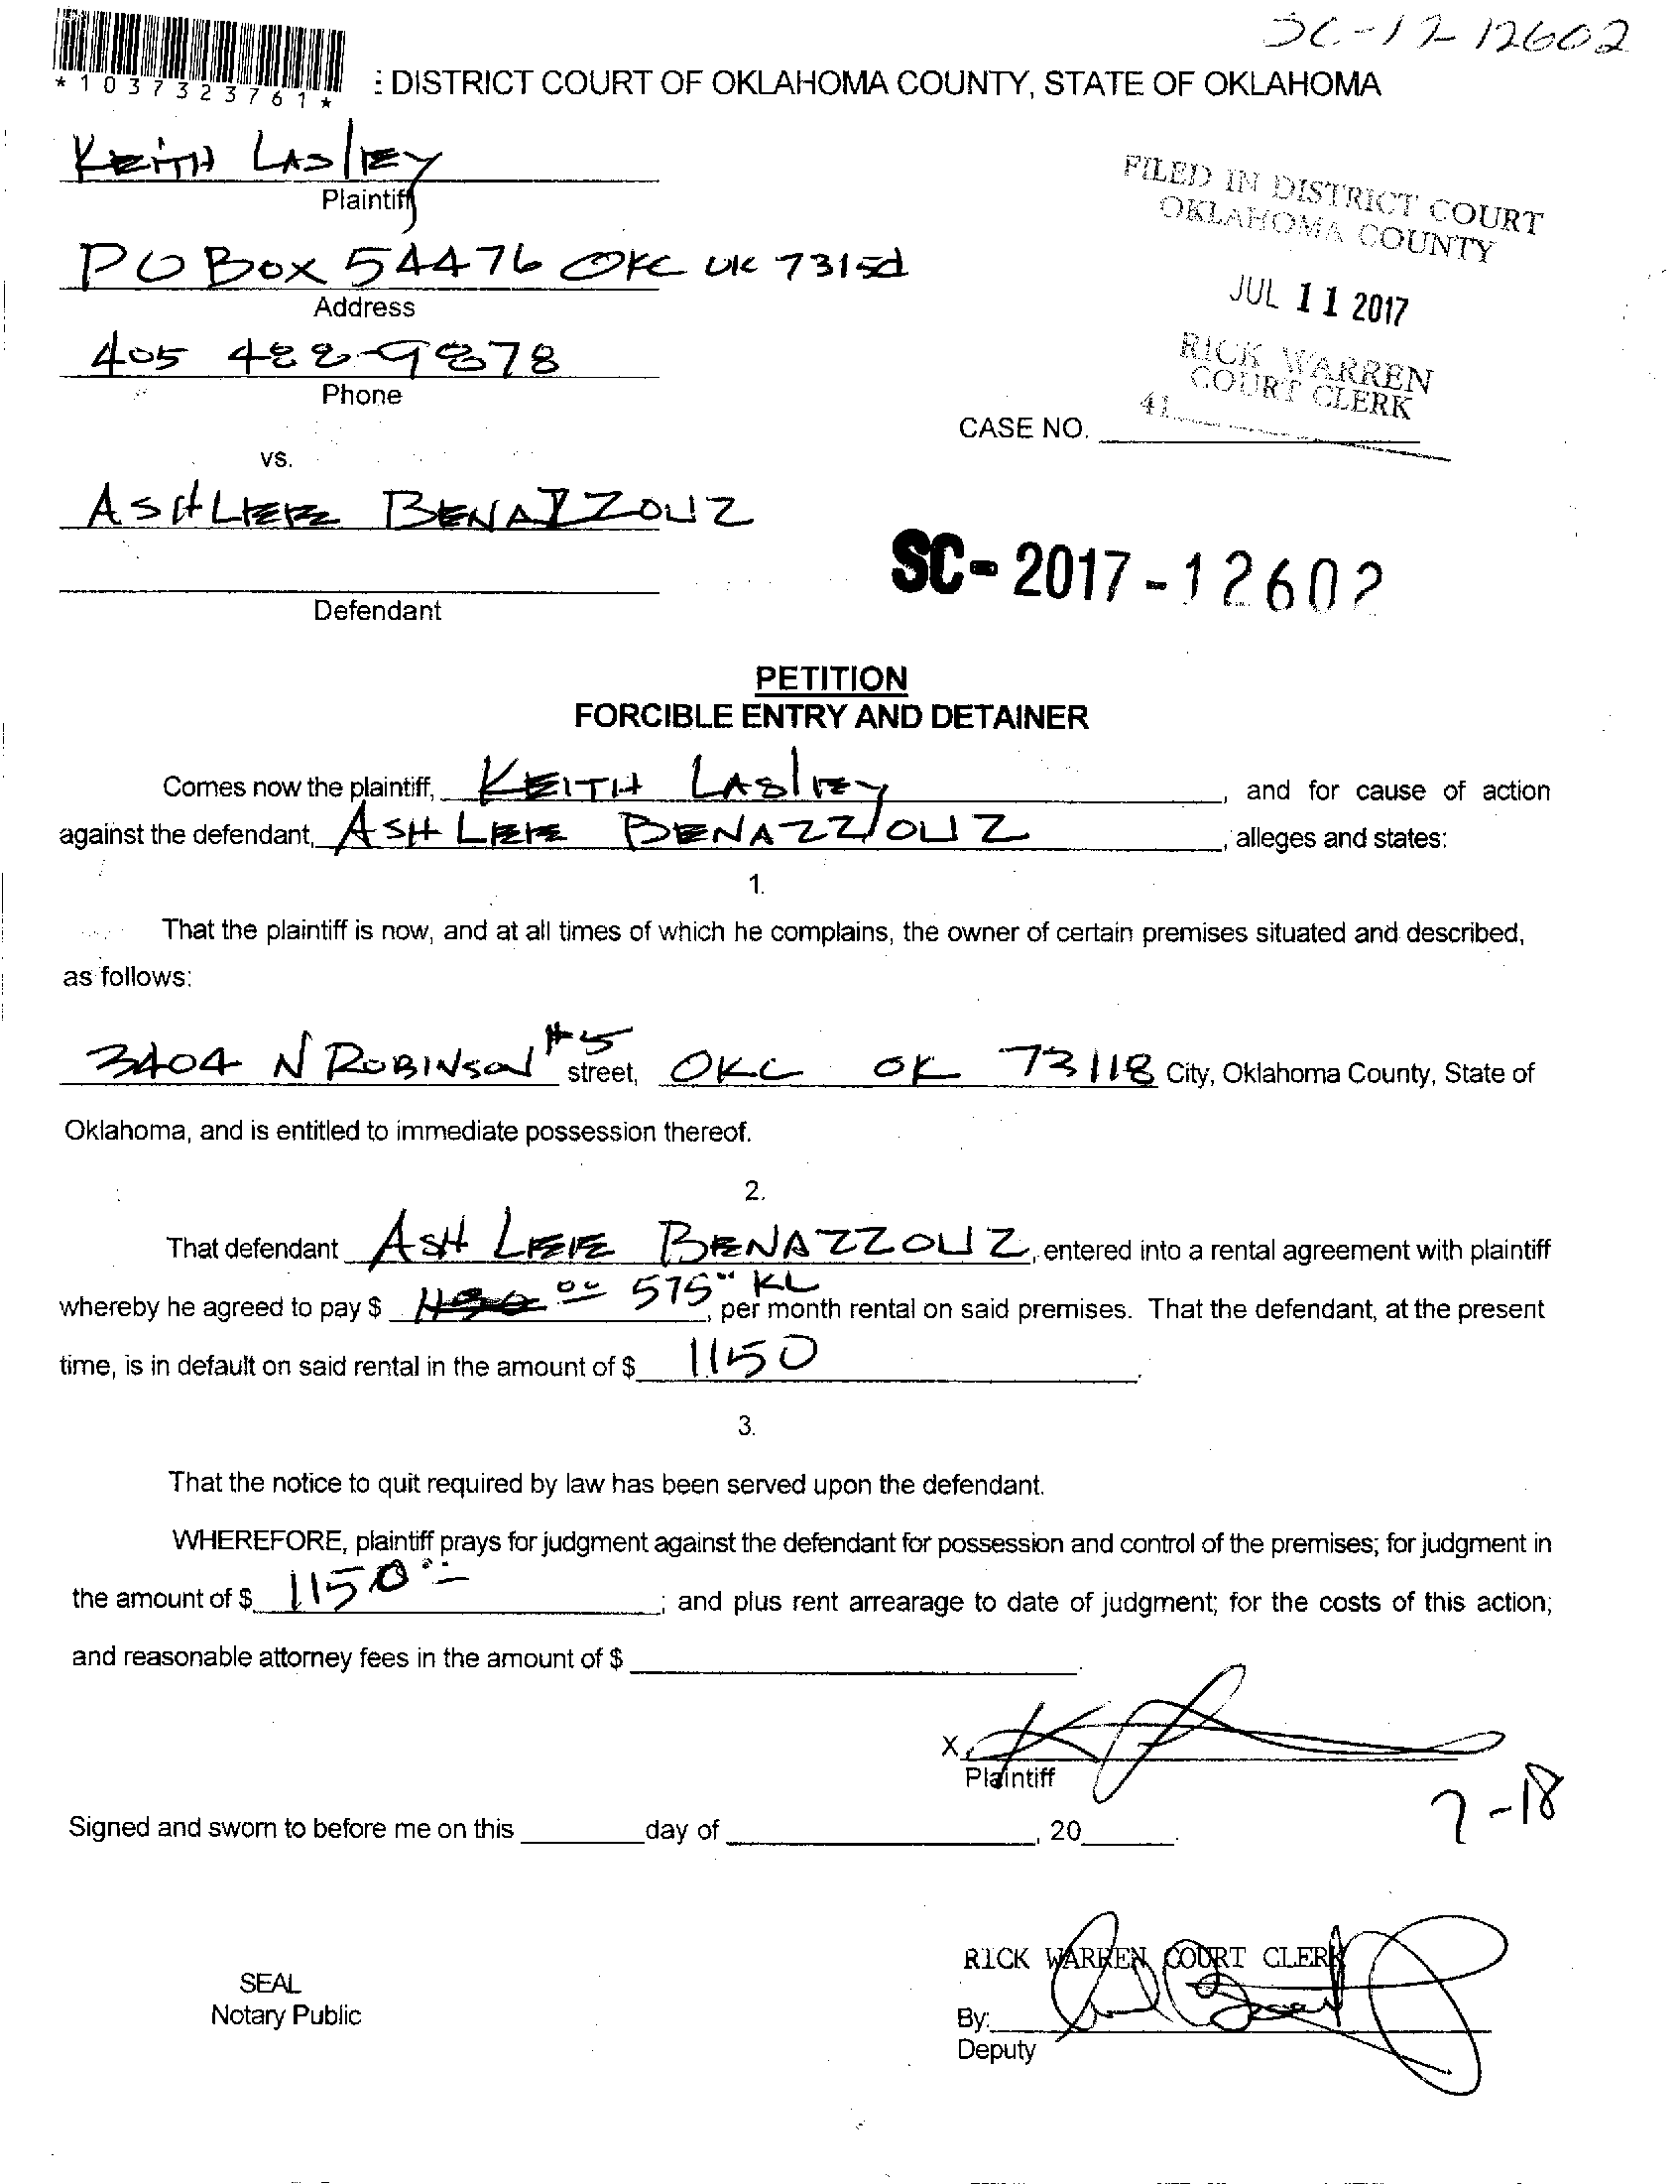 SC-17 12602
*1037323761*
: DISTRICT COURT OF OKLAHOMA COUNTY, STATE OF OKLAHOMA
KEITH LASLEY
Plaintiff
FILED IN DISTRICT COURT
OKLAHOMA COUNTY
PO BOX 54476 OKC OK 73154
Address
JUL 11 2017
405 488-9878
Phone
RICK WARREN
COURT CLERK
41
CASE NO.
vs.
ASHLEE BENAZZOUZ
SC-2017-12602
Defendant
PETITION
FORCIBLE ENTRY AND DETAINER
Comes now the plaintiff, KEITH LASLEY, and for cause of action
against the defendant, ASHLEE BENAZZOUZ, alleges and states:
1.
That the plaintiff is now, and at all times of which he complains, the owner of certain premises situated and described,
as follows:
3404 N ROBINSON #5 street, OKC OK 73118 City, Oklahoma County, State of
Oklahoma, and is entitled to immediate possession thereof.
2.
That defendant ASHLEE BENAZZOUZ, entered into a rental agreement with plaintiff
whereby he agreed to pay $ 575 KL, per month rental on said premises. That the defendant, at the present
time, is in default on said rental in the amount of $ 1150.
3.
That the notice to quit required by law has been served upon the defendant.
WHEREFORE, plaintiff prays for judgment against the defendant for possession and control of the premises; for judgment in
the amount of $ 1150.00; and plus rent arrearage to date of judgment; for the costs of this action;
and reasonable attorney fees in the amount of $
X
Plaintiff
7-18
Signed and sworn to before me on this day of , 20 .
RICK WARREN COURT CLERK
SEAL
Notary Public
By:
Deputy